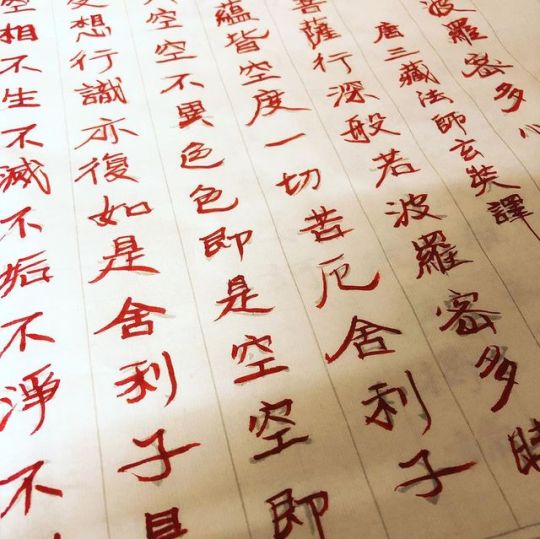 波羅密多心
唐三藏法師玄奘譯
菩薩行深般若波羅密多時
蘊皆空度一切苦厄舍利子
空空不異色色即是空空即
受想行識亦復如是舍利子是
空相不生不滅不垢不淨不